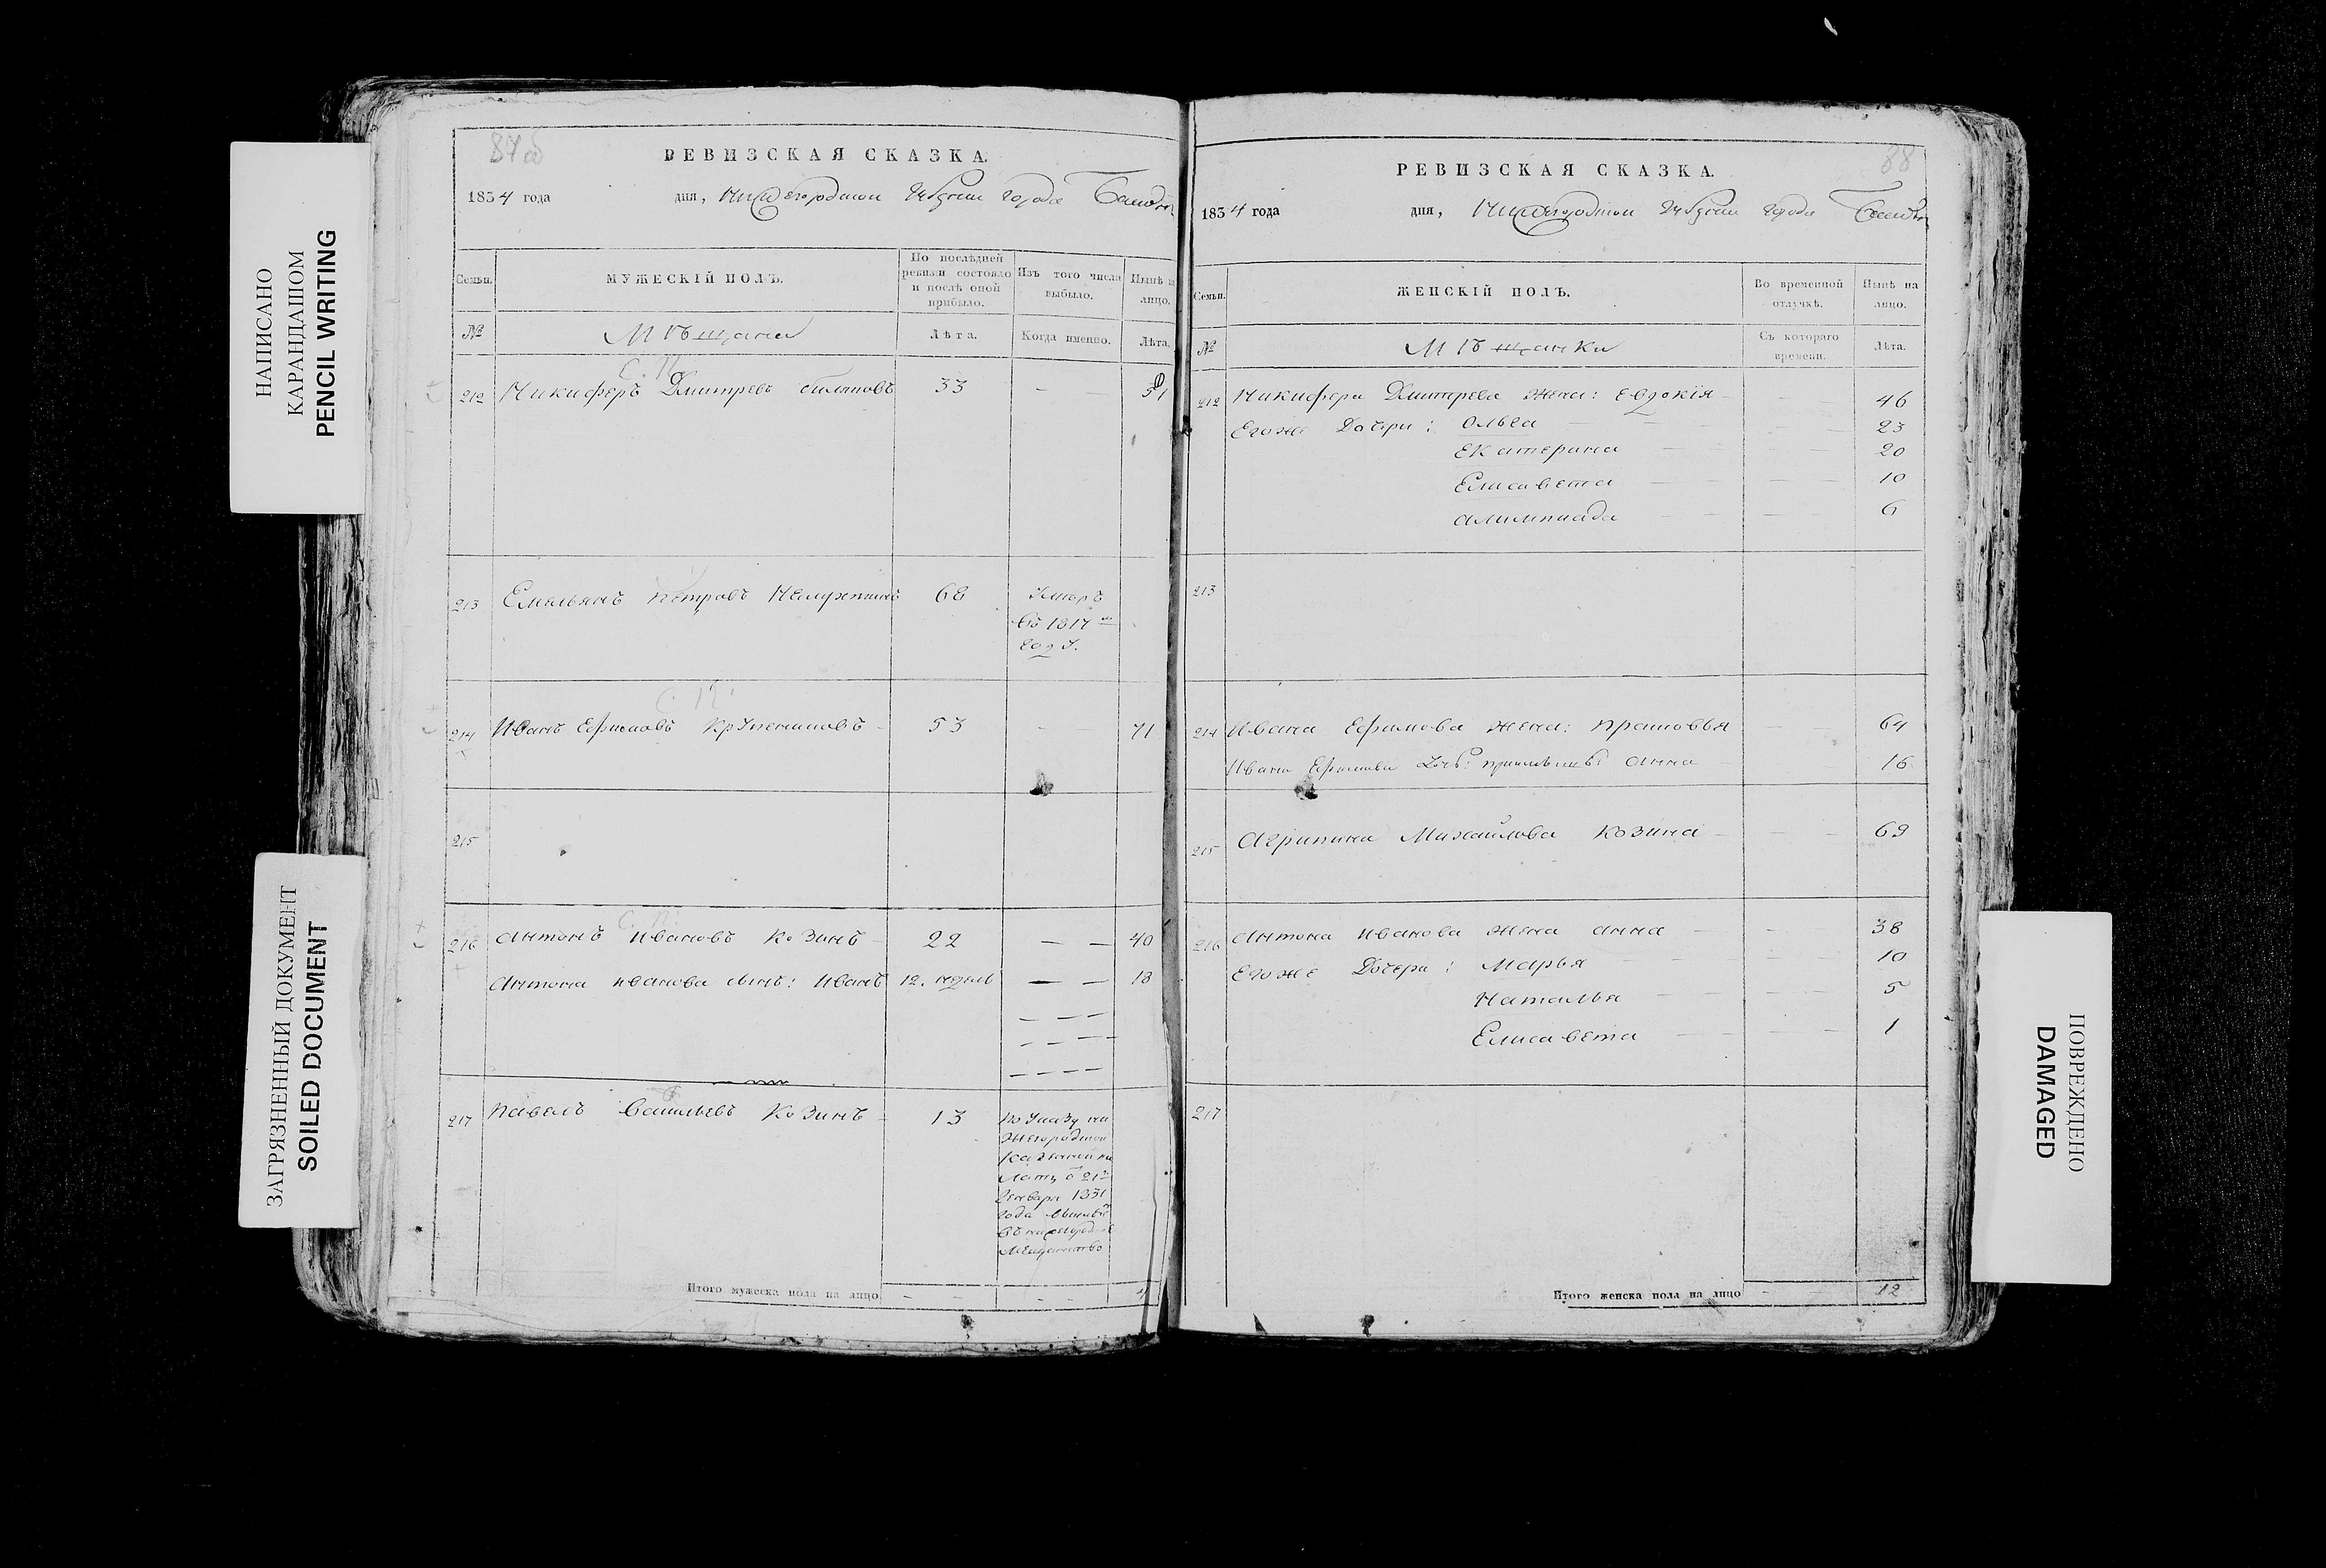 НАПИСАНО
КАРАНДАШОМ
PENCIL WRITING
ЗАГРЯЗНЕННЫЙ ДОКУМЕНТ
SOILED DOCUMENT
87об
РЕВИЗСКАЯ СКАЗКА.
1834 года дня, Нижегородской Губернии города
Семьи. МУЖЕСКІЙ ПОЛЪ. По послѣдней ревизіи состояло и послѣ оной прибыло. Изъ того числа выбыло. Нынѣ на лицо.
№ Мѣщане Лѣта. Когда именно. Лѣта.
С. П.
212 Никифоръ Дмитревъ 33 — 51
213 Емельянъ Петровъ 68 Умеръ
въ 1817 м
году.
С. П.
214 Иванъ Ефимовъ 53 — 71
215
С. П.
216 Антонъ Ивановъ Козинъ 22 — — 40
Антона Иванова сынъ: Иванъ 12. недель — — 18
217 Павелъ Васильевъ Козинъ 13 по Указу ни
жегородской
Казенной па
латы 21го
Генваря 1831
года
въ
мещанство
Итого мужеска пола на лицо
88
РЕВИЗСКАЯ СКАЗКА.
1834 года дня, Нижегородской Губернии города
Семьи. ЖЕНСКІЙ ПОЛЪ. Во временной отлучкѣ. Нынѣ на лицо.
№ Мѣщанки Съ котораго времени. Лѣта.
212 Никифора Дмитрева жена: Евдокія 46
Егоже Дочери: Ольга 23
Екатерина 20
Елисавета 10
Алимпиада 6
213
214 Ивана Ефимова жена: Прасковья 64
Ивана Ефимова Анна 16
215 Агрипина Михайлова Козина 69
216 Антона Иванова жена Анна 38
Егоже Дочери: Марья 10
Наталья 5
Елисавета 1
217
Итого женска пола на лицо 12
ПОВРЕЖДЕНО
DAMAGED